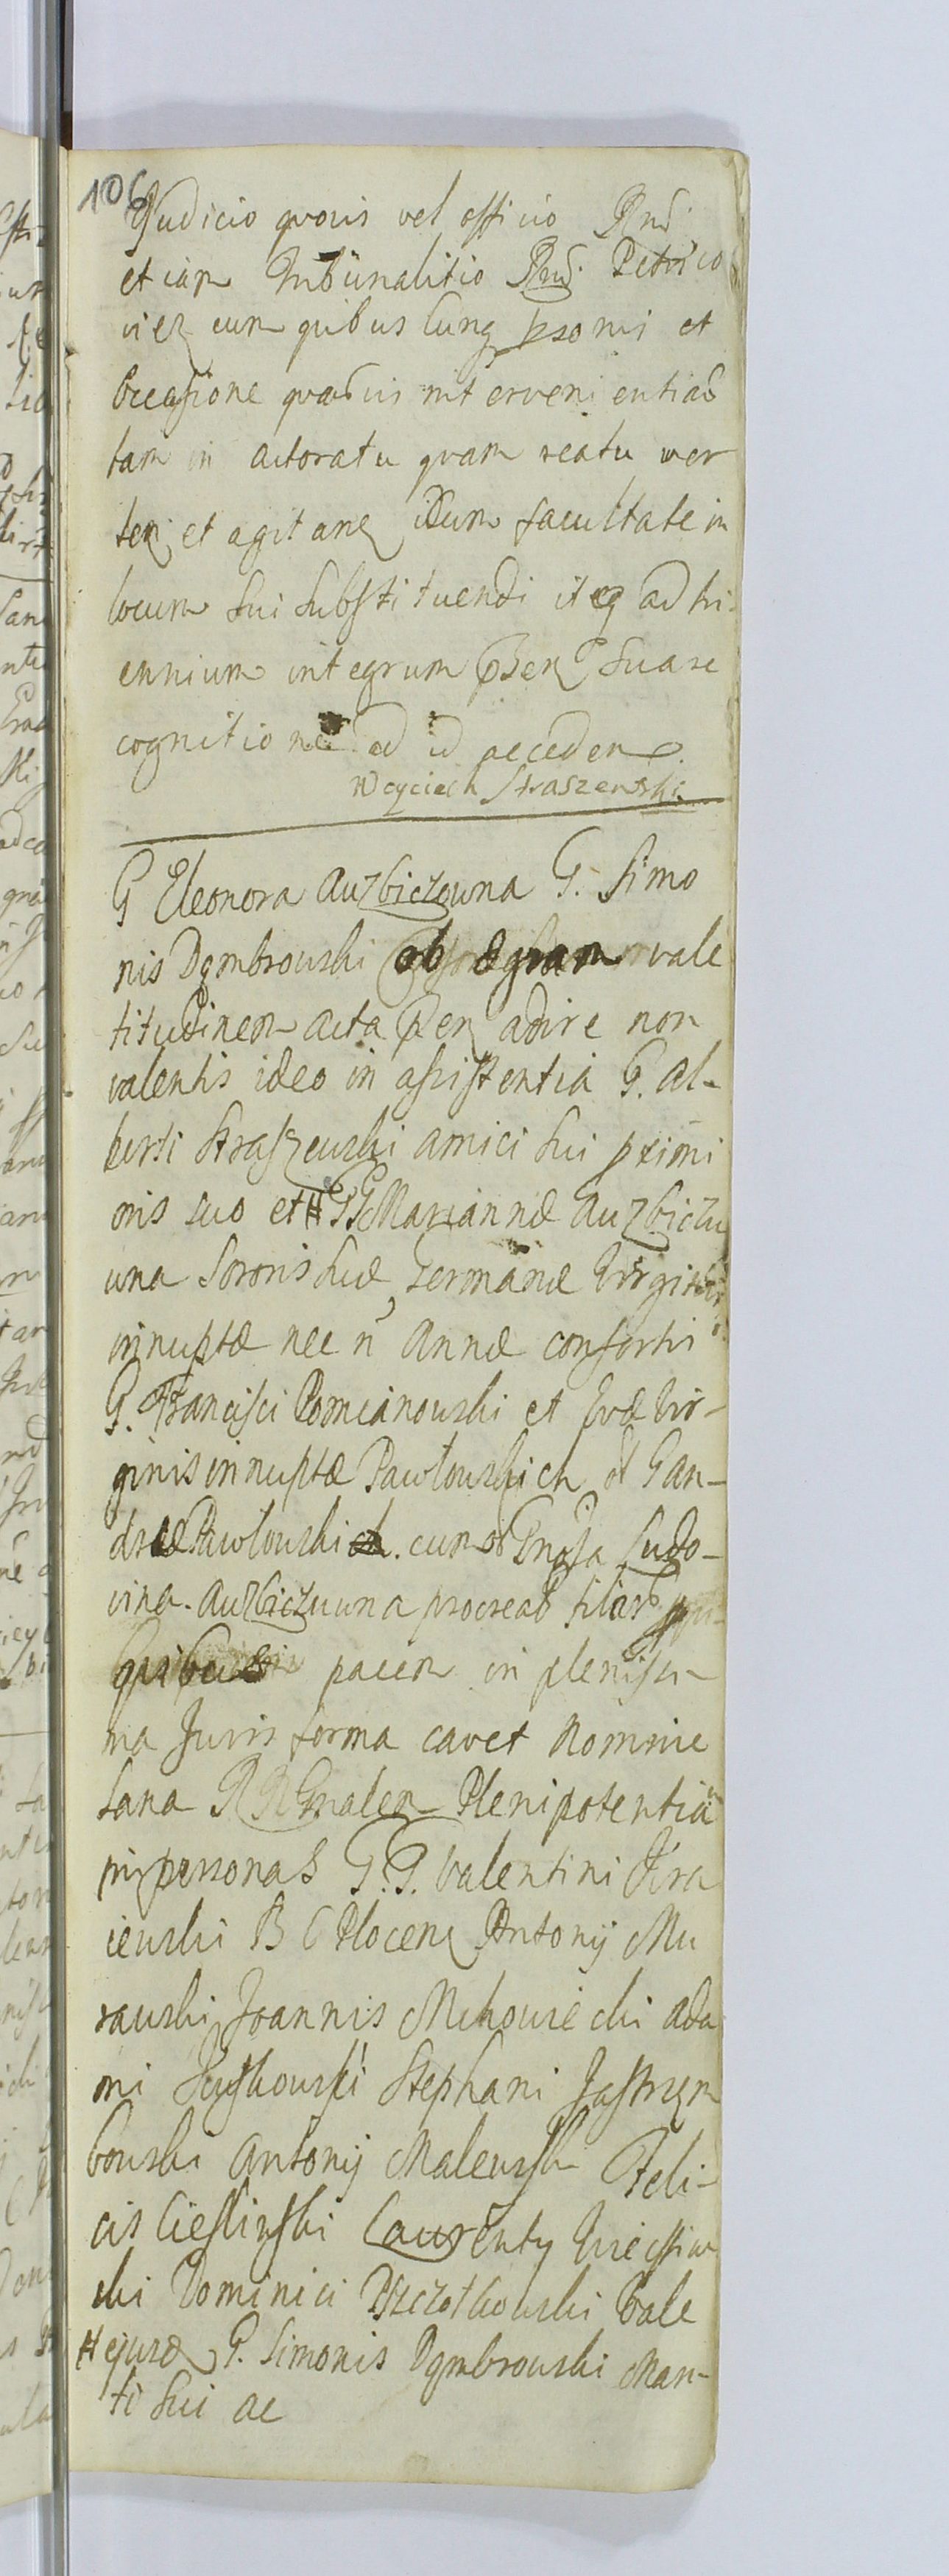 106
Judicio quovis vel officio Rnd.
etiam Tribunalitio Rnd. Petrico
viez cum quibus cunq psonis et
Occasione quavis intervenientiab
tam in actoratu quam reatu ver
ten et agitane idum facultate in
locum sui substituendi itq ad tri
ennium integrum psen suase
cognitione ad id acceden
Woyciech Straszewski
G Eleonora Auzbiczowna G. Simo
nis Dąmbrowski ob ægram vale
titudinem acta psen adire non
valentis ideo in assistentia G. Al-
berti Straszewski amici sui ꝓximi
oris suo et # GG Mariannæ Auzbiczu
wna Sororis suæ Germanæ Virginis
innuptæ nec n Annæ consortis
G. Francisci Pomianowski et Evæ Vir-
ginis innuptæ Pawłowskich et G An-
dreæ Pawłowski cum ol Gnosa Ludo-
vina Auzbiczuwna procreat filiar
quibus pacem in plenissi-
ma Juris forma cavet Nomine
sana R R Gnalem Plenipotentia
in personas G. G. Valentini Kra
iewski B C Plocen Antonij Mu
rawski Joannis Mchowiecki Ada
mi Stephani Jastrzęm
bowski Antonij Malewski Feli-
cis Cieslinski Laurenty
cki Dominici Pszczołkowski Vale
# ejusd G. Simonis Dąmbrowski Mari-
ti sui ac